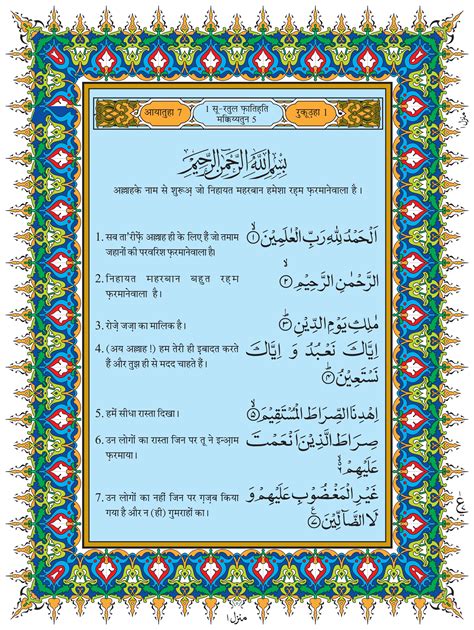 आयातुहा 7
1 सू-रतुल फ़ातिहति
मक्किय्यतुन 5
रुकूउ़हा 1
بِسْمِ اللهِ الرَّحْمٰنِ الرَّحِيْمِ
अल्लाहके नाम से शुरूअ़ जो निहायत महरबान हमेशा रहम फ़रमानेवाला है ।
1. सब ता'रीफ़ें अल्लाह ही के लिए हैं जो तमाम
जहानों की परवरिश फ़रमानेवाला है।
اَلْحَمْدُ لِلّٰهِ رَبِّ الْعٰلَمِيْنَ ۙ﴿۱﴾
2. निहायत महरबान बहुत रहम
फ़रमानेवाला है ।
الرَّحْمٰنِ الرَّحِيْمِ ۙ﴿۲﴾
3. रोज़े जज़ा का मालिक है ।
مٰلِكِ يَوْمِ الدِّيْنِ ؕ﴿۳﴾
4. (अय अल्लाह !) हम तेरी ही इबादत करते
हैं और तुझ ही से मदद चाहते हैं ।
اِيَّاكَ نَعْبُدُ وَ اِيَّاكَ
نَسْتَعِيْنُ ؕ﴿۴﴾
5. हमें सीधा रास्ता दिखा ।
اِهْدِنَا الصِّرَاطَ الْمُسْتَقِيْمَ ۙ﴿۵﴾
6. उन लोगों का रास्ता जिन पर तू ने इन्आ़म
फ़रमाया ।
صِرَاطَ الَّذِيْنَ اَنْعَمْتَ
عَلَيْهِمْ ۙ﴿۶﴾
7. उन लोगों का नहीं जिन पर ग़ज़ब किया
गया है और न (ही) गुमराहों का ।
غَيْرِ الْمَغْضُوْبِ عَلَيْهِمْ وَ
لَا الضَّآلِّيْنَ ﴿۷﴾
منزل
ع
منزل ۱